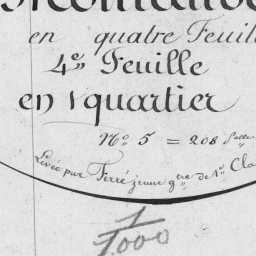 en quatre Feuill
4e Feuille
en 1 quartier
No 5 = 208 Parcelles
Levée par Ferré jeune gre de 1re Cla
1/1000